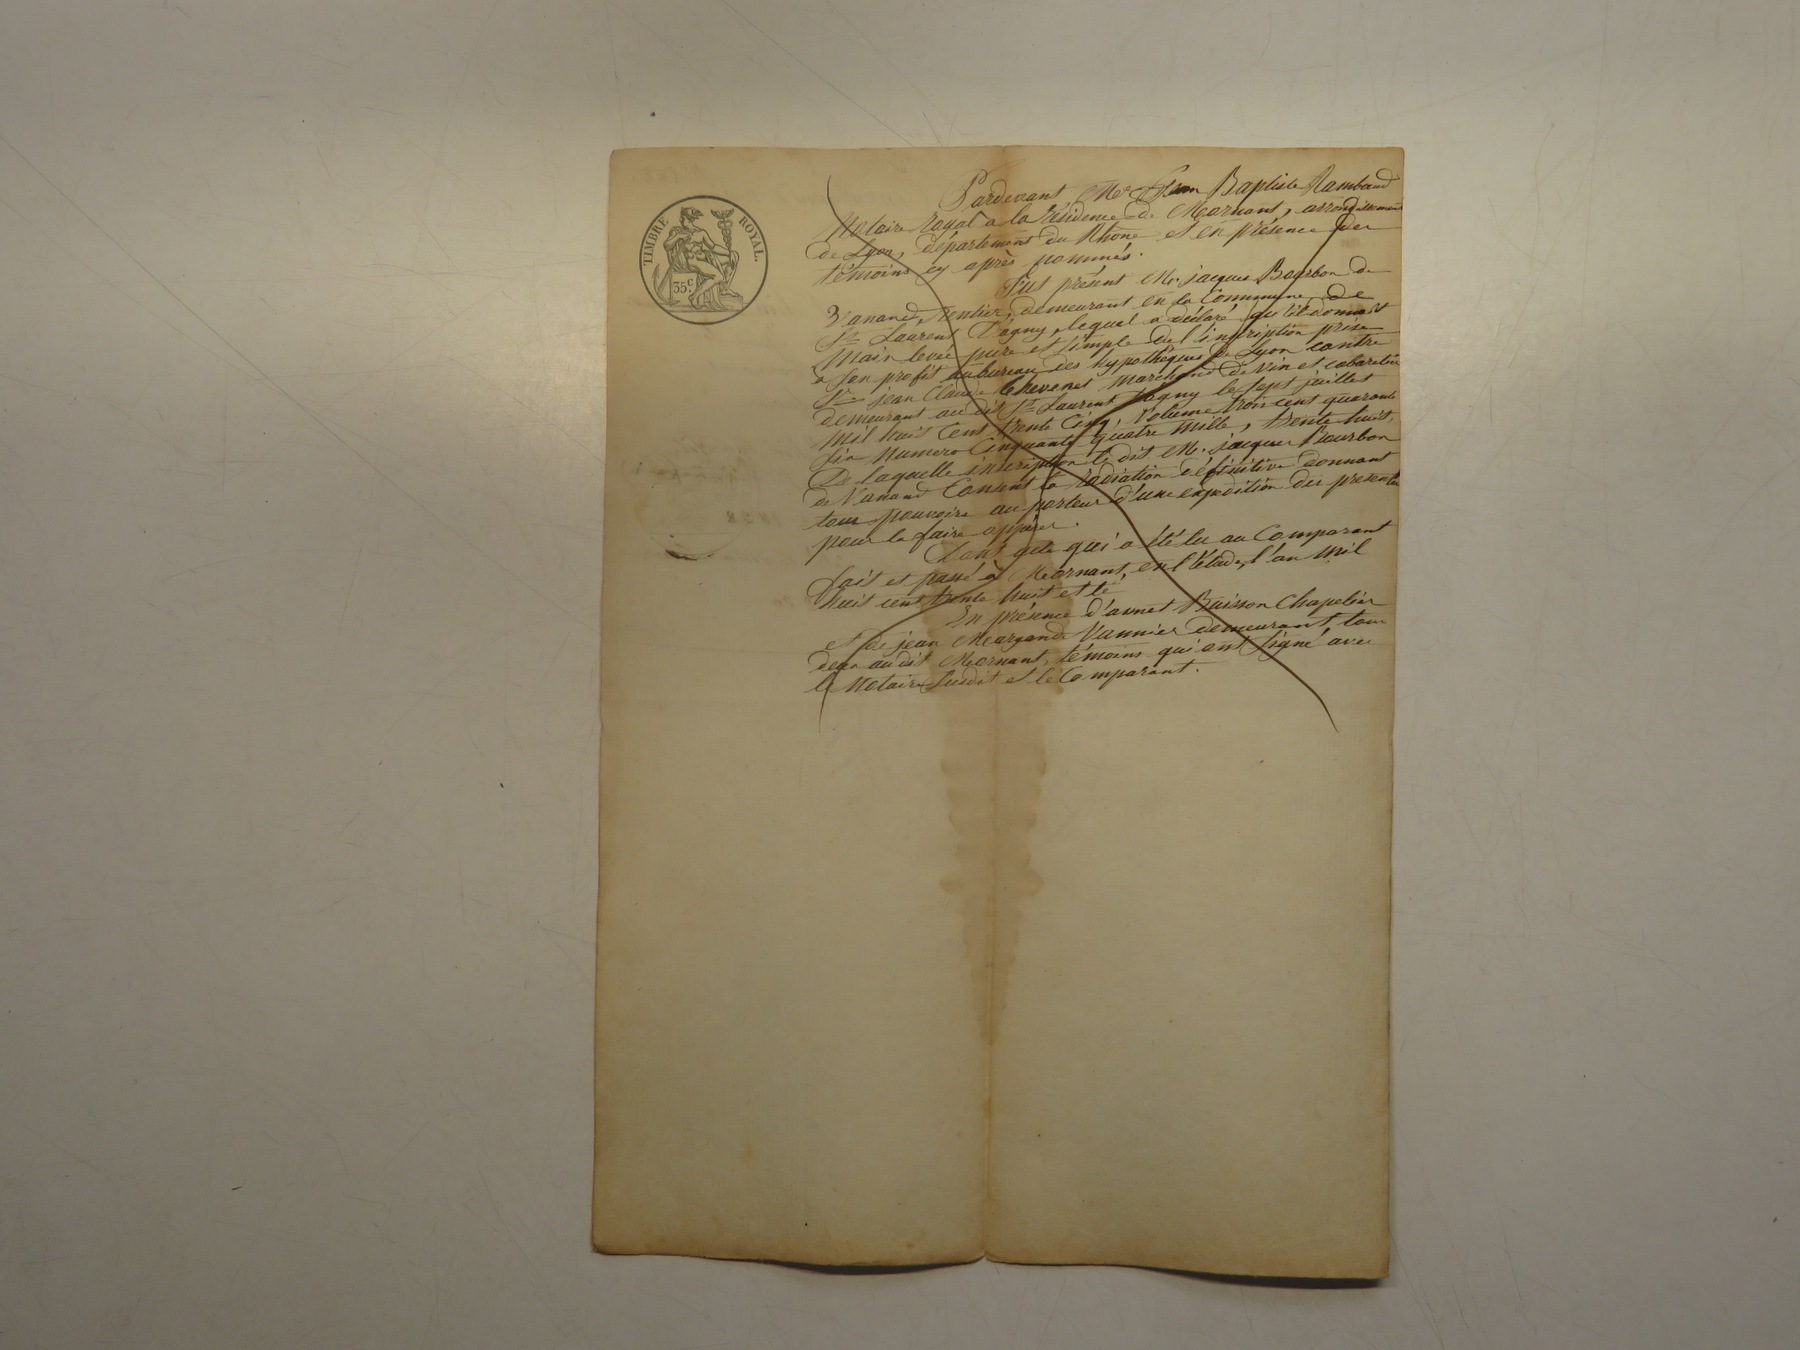 TIMBRE ROYAL.
35.c
Pardevant Me Jean Baptiste Rambaud
Notaire Royal à la résidence de Mornant, arrondissement
de Lyon, département du Rhône et en présence des
témoins cy après nommés.
Fut présent Mr. jacques Bourbon de
Vanand, Rentier, demeurant en la Commune de
St. Laurent D'agny, lequel a déclaré qu'il donnait
Main levée pure et simple de l'inscription prise
a son profit au bureau des hypothèques de Lyon contre
Sr. jean Claude Thevenet Marchand de vin et cabaretier
demeurant au dit St. Laurent d'agny le sept juillet
Mil huit cent trente Cinq, Volume trois cent quarante
six Numero Cinquante quatre mille, trente huit,
De laquelle inscription le dit Mr. jacques Bourbon
de Vanand Consent la radiation définitive donnant
tous pouvoirs au porteur d'une expedition des presentes
pour la faire opérer.
Dont acte qui a été lu au Comparant
fait et passé à Mornant, en l'étude, l'an Mil
huit cent trente huit et le
En présence d'annet Buisson Chapelier
et de jean Margand Vannier demeurant tous
deux au dit Mornant, témoins qui ont signé avec
le Notaire susdit et le Comparant.